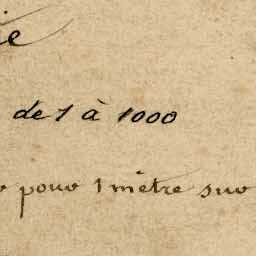 ie
de 1 à 1000
pour 1 mètre sur